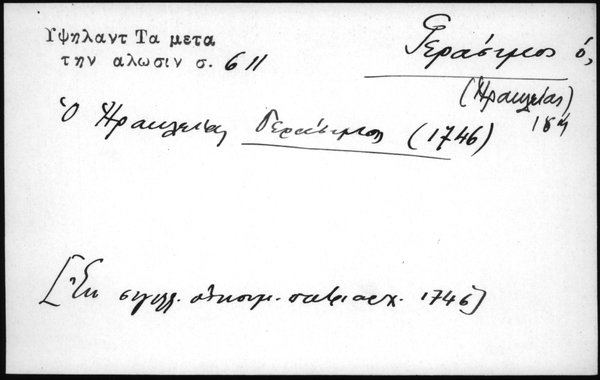 Υψηλαντ Τα μετα
την αλωσιν σ. 611
Γεράσιμος ὁ,
(Ἡρακλείας)
18ος
Ὁ Ἡρακλείας Γεράσιμος (1746)
[Ἐκ σιγιλλ. οἰκουμ. πατριαρχ. 1746]